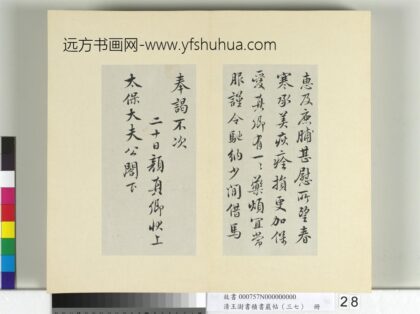 远方书画网-www.yfshuhua.com
惠及鹿脯甚慰所望春
寒承美疾痊損更加保
愛真卿有一二藥煩宜常
服謹令馳納少間借馬
奉謁不次
二十日顏真卿狀上
太保大夫公閣下
故書 000757N000000000
清王澍書積書巖帖(三七) 冊
28